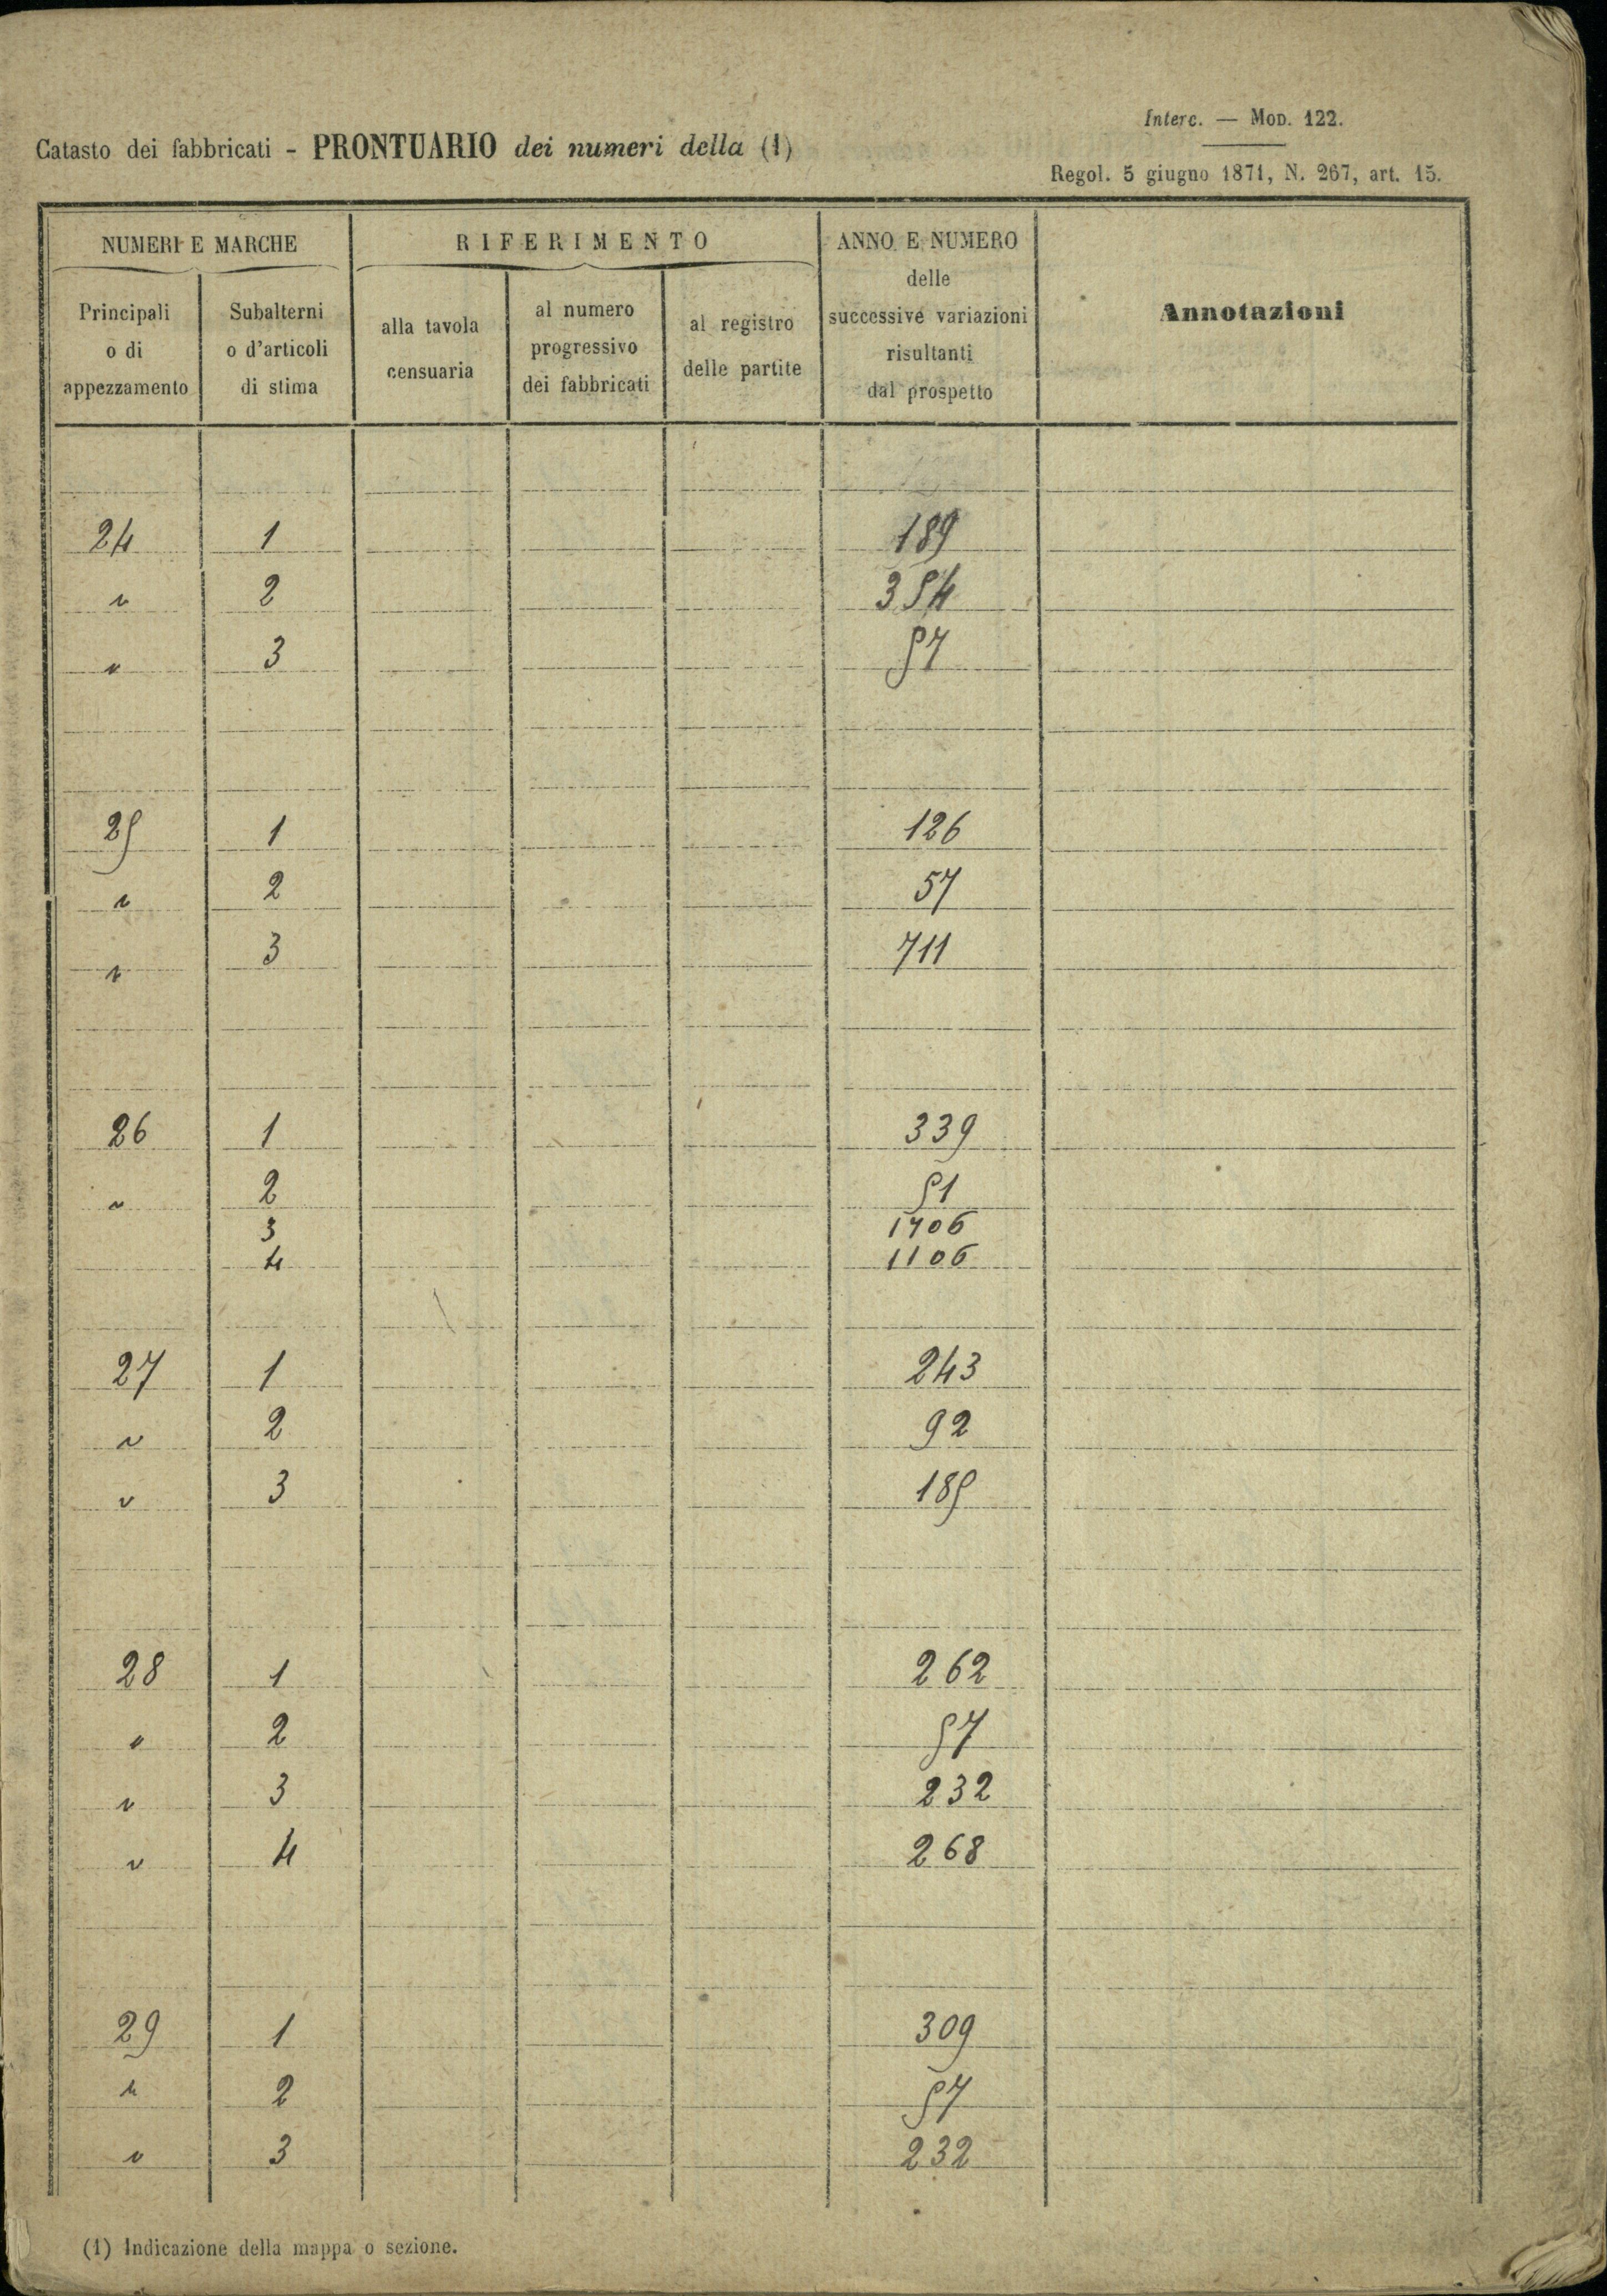 Interc. — MOD. 122.
Catasto dei fabbricati - PRONTUARIO dei numeri della (1)
Regol. 5 giugno 1871, N. 267, art. 15.
NUMERI E MARCHE
RIFERIMENTO
ANNO E NUMERO
delle
successive variazioni
risultanti
dal prospetto
Annotazioni
Principali
o di
appezzamento
Subalterni
o d'articoli
di stima
alla tavola
censuaria
al numero
progressivo
dei fabbricati
al registro
delle partite
24 1 189
" 2 354
" 3 57
25 1 126
" 2 57
" 3 711
26 1 339
" 2 51
3 1706
4 1106
27 1 243
" 2 92
" 3 185
28 1 262
" 2 57
" 3 232
" 4 268
29 1 309
" 2 57
" 3 232
(1) Indicazione della mappa o sezione.